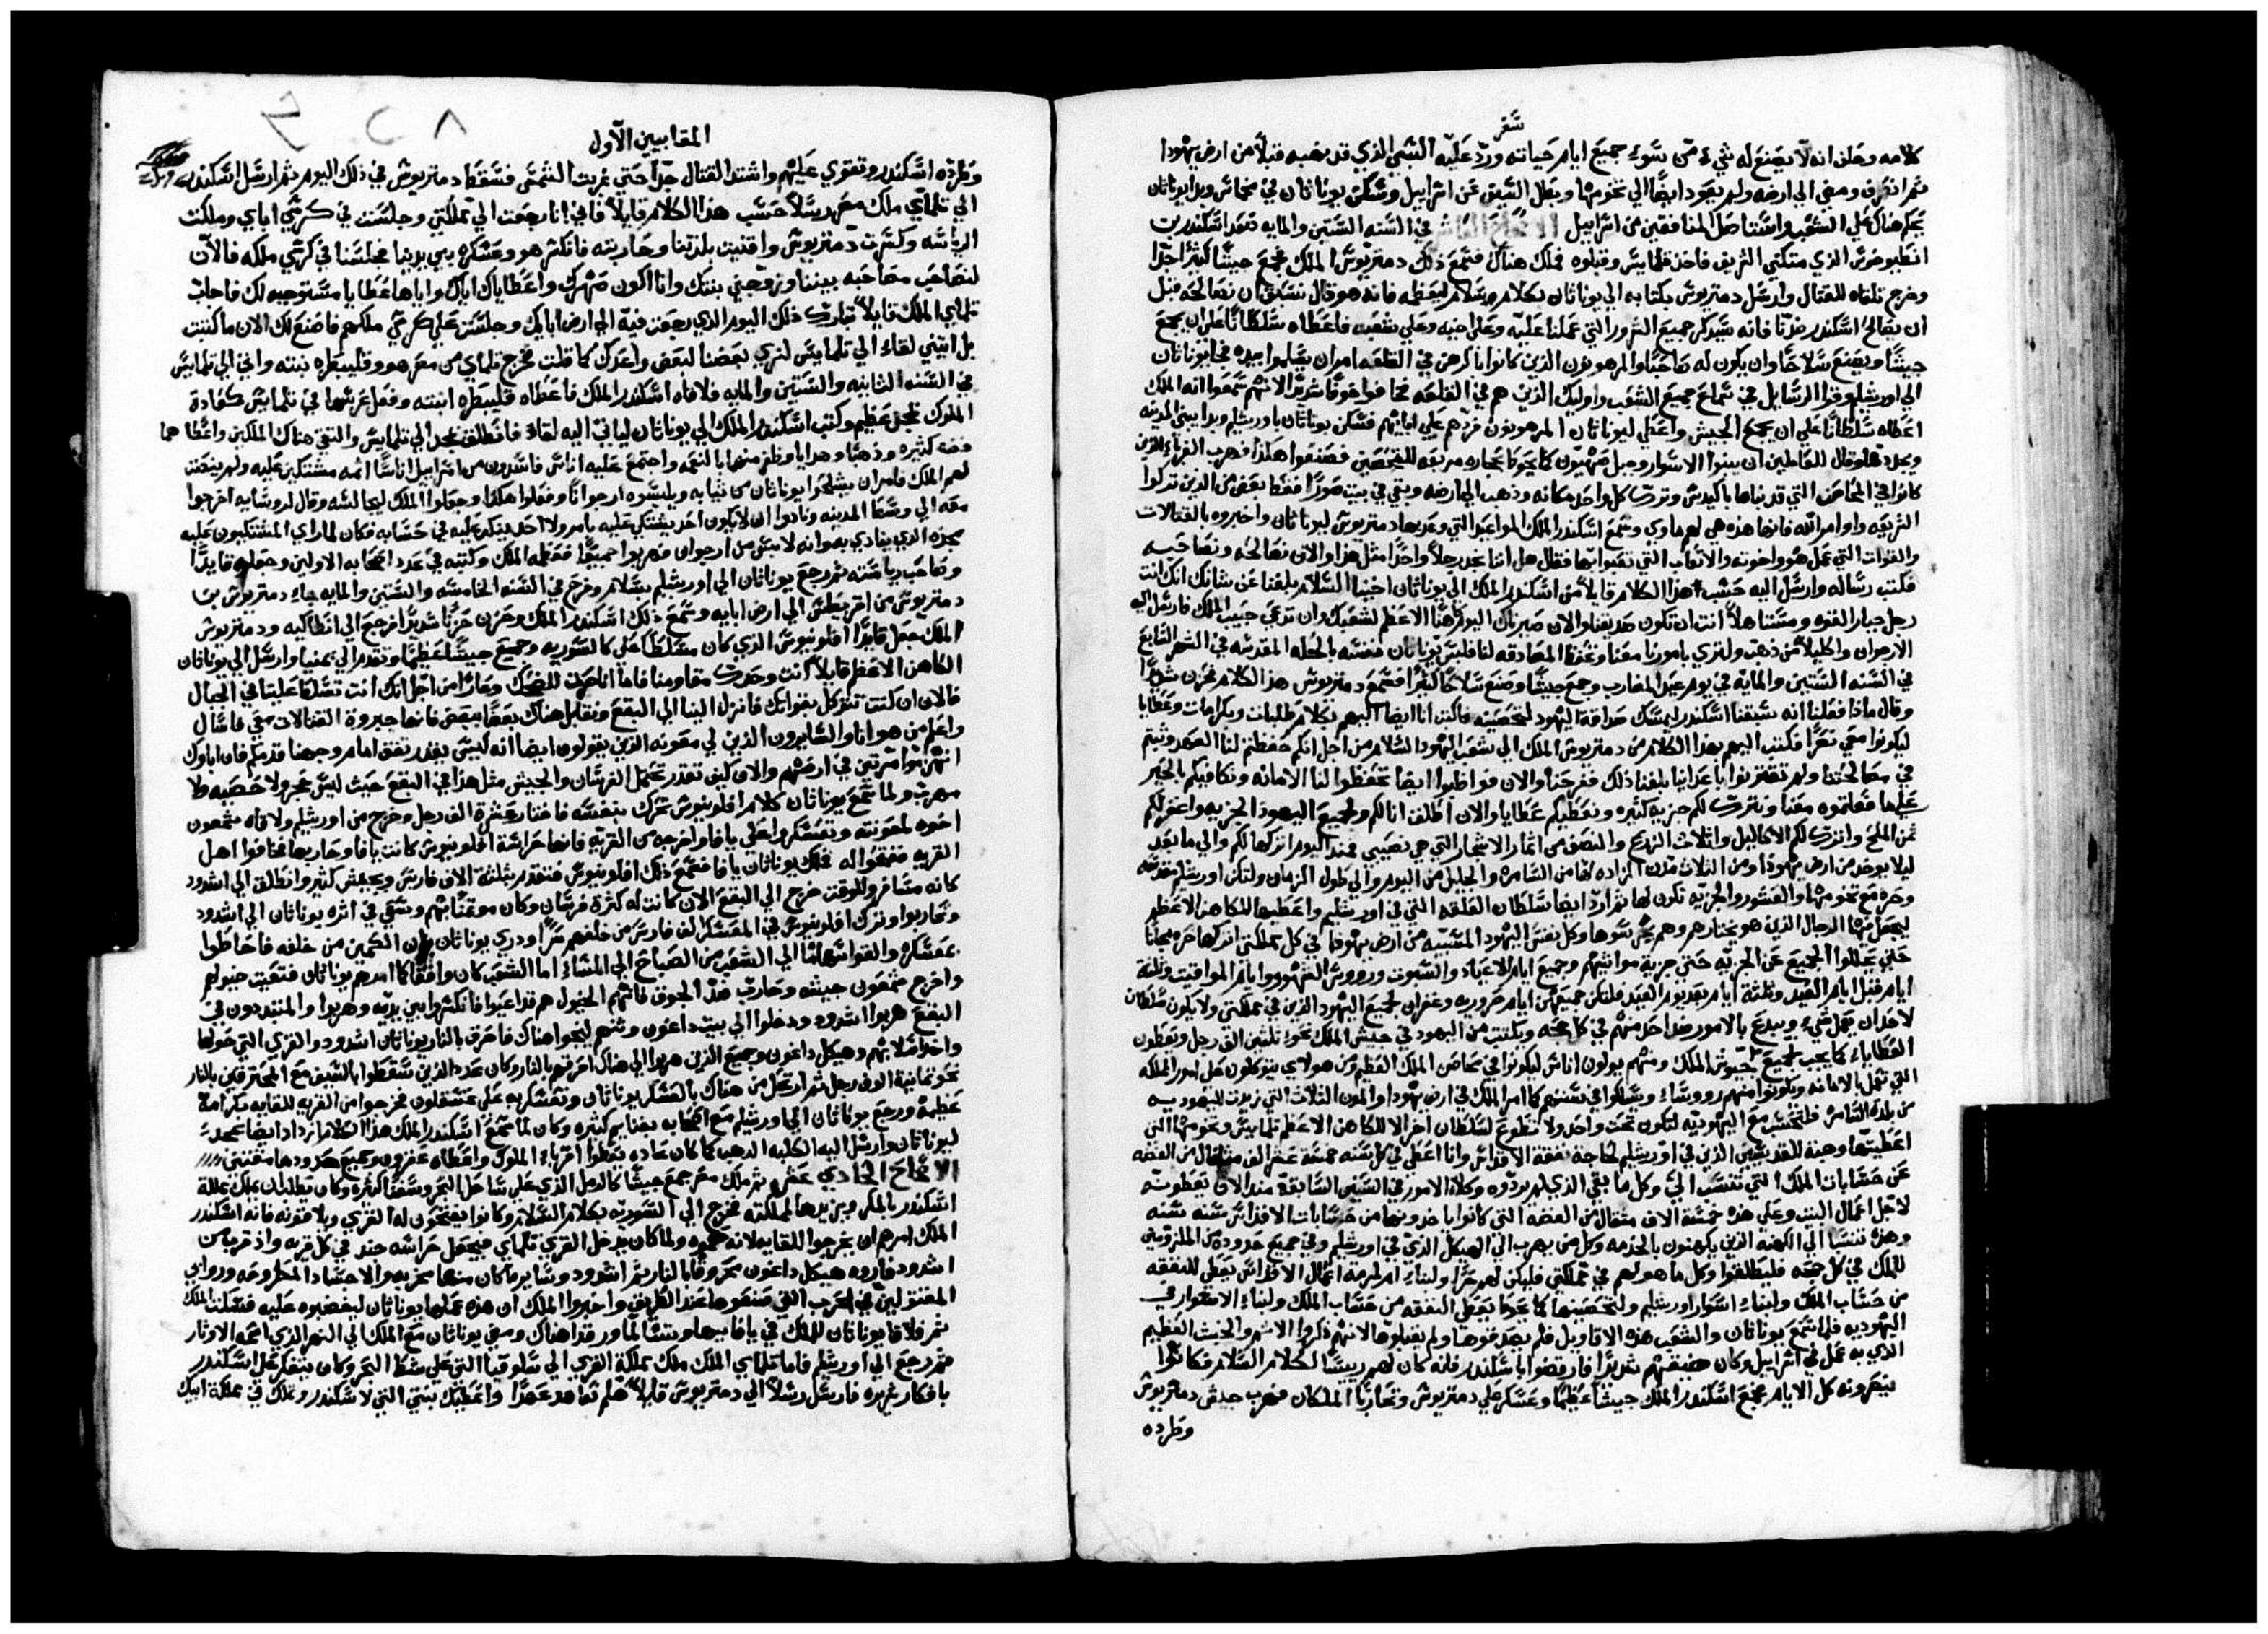 سفر
كلامه وحلف انه لا يصنع له شيء من سوء جميع ايام حياته ورد عليه السبي الذي قد نهبه قبلاً من ارض يهودا
ثم انصرف ومضي الي ارضه ولم يعود ايضًا الي تخومها وبطل السيف من اسراييل وسكن يوناثان في مخماس وبدا يوناثان
يحكم هناك علي الشعب واستاصل المنافقين من اسراييل في السنه الستين والمايه صعد اسكندر بن
انطيوخوس الذي متكني الشريف فاخذ تلمايس وقبلوه فملك هناك فسمع ذلك دمتريوس الملك فجمع جيشًا كثيرًا جدًا
وخرج تلقاه للقتال وارسل دمتريوس بكتابه الي يوناثان بكلام وسلام ليعظمه فانه هو قال نسبق ان نصالحه قبل
ان يصالح اسكندر ضدنا فانه سيذكر جميع الشرور التي عملنا عليه وعلي اخيه وعلي شعبه فاعطاه سلطانًا علي ان يجمع
جيشًا ويصنع سلاحًا وان يكون له صاحبًا والمرهونون الذين كانوا في القلعه امر ان يسلموا بيده فجا يوناثان
الي اورشليم وقرا الرسايل في سماع جميع الشعب واوليك الذين هم في القلعه فخافوا خوفًا شديدًا لانهم سمعوا انه الملك
اعطاه سلطانًا علي ان يجمع الجيش واعطي ليوناثان المرهونون فردهم علي اباييهم فسكن يوناثان باورشليم وبدا يبني المدينه
ويجددها وقال للعاملين ان يبنوا الاسوار وجبل صهيون كما يحوط بحجاره مربعه للتحصين فصنعوا هكذا فهرب الغرباء الذين
كانوا في المحاصن التي قد بناها باكيدس وترك كل واحد مكانه وذهب الي ارضه وبقي في بيت صورا فقط بعض من الذين تركوا
الشريعه واوامر الله فانما هذه هي لهم ماوي وسمع اسكندر الملك المواعيد التي وعد بها دمتريوس ليوناثان واخبروه بالقتالات
والقوات التي عمل هو واخوته والاتعاب التي تعبوا بها فقال هل اننا نجد رجلاً واحدًا مثل هذا والان نصالحه ونصاحبه
فكتب رساله وارسل اليه حسب هذا الكلام قايلاً من اسكندر الملك الي يوناثان اخينا السلام بلغنا عن شانك انك انت
رجل جبار القوه ومستاهلاً انت ان تكون صديقنا والان صيرناك اليوم كاهنًا الاعظم لشعبك وان تدعي حبيب الملك فارسل اليه
الارجوان واكليلاً من ذهب ولتري بامورنا معنا وتحفظ المصادقه لنا فلبس يوناثان نفسه بالحله المقدسه في الشهر السابع
في السنه الستين والمايه في يوم عيد المضارب وجمع جيشًا وصنع سلاحًا كثيرًا فسمع دمتريوس هذا الكلام فحزن شديدًا
وقال ماذا فعلنا انه سبقنا اسكندر ليمسك صداقة اليهود لتحصينه فاكتب انا ايضًا اليهم بكلام طلبات وبكرامات وعطايا
ليكونوا معي نصرًا فكتب اليهم بهذا الكلام من دمتريوس الملك الي شعب اليهود السلام من اجل انكم حفظتم لنا العهد وثبتم
في مصالحتنا ولم تقتربوا باعداينا بلغنا ذلك ففرحنا والان فواظبوا ايضا تحفظوا لنا الامانه ونكافيكم بالخير
عليها فعلتموه معنا ونترك لكم جزيه كثيره ونعطيكم عطايا والان اطلق انا لكم ولجميع اليهود الجزيه واغفر لكم
ثمن الملح واترك لكم الاكاليل واثلاث الزرع والنصف من اثمار الاشجار التي هي نصيبي فمنذ اليوم اتركها لكم والي ما بعد
ليلا يوخذ من ارض يهودا ومن الثلاث مدن المزاده لها من السامره والجليل من اليوم والي طول الزمان ولتكن اورشليم مقدسه
وحره مع تخومها والعشور والجزيه تكون لها ثم ارد ايضا سلطان القلعه التي في اورشليم واعطيها للكاهن الاعظم
ليجعل فيها الرجال الذين هو يختارهم وهم يحرسوها وكل نفس اليهود المسبيه من ارض يهودا في كل مملكتي اتركها حره مجانًا
حتي يحللوا الجميع عن الجزيه حتي جزية مواشيهم وجميع ايام الاعياد والسبوت ورووس الشهور وايام المواقيت وثلثة
ايام قبل ايام العيد وثلثة ايام بعد يوم العيد فلتكن جميعهن ايام حروريه وغفران لجميع اليهود الذين في مملكتي ولا يكون سلطان
لاحد ان يعمل شيء ويبدع بالامور ضد احد منهم في كل جهه ويكتتب من اليهود في جيش الملك نحو ثلثين الف رجل ويعطون
العطاياء كما يجب لجميع جيوش الملك ومنهم يولون اناس ليكونوا في محاصن الملك العظيم ومن هولاي يتوكلون علي امور المملكه
التي تعمل بالامانه ويكونوا منهم رووساء ويسلكوا في سننهم كما امر الملك في ارض يهودا والمدن الثلاث التي زيدت لليهوديه
من بلدة السامره فلتحسب مع اليهوديه لتكون تحت واحد ولا تطوع لسلطان اخر الا للكاهن الاعظم تلمايس وتخومها التي
اعطيتها وهبة للقديسين الذين في اورشليم لحاجة نفقة الاقداس وانا اعطي في كل سنه خمسة عشر الف مثقال من الفضه
عن حسابات الملك التي تنتسب الي وكل ما بقي الذي لم يردوه وكلاة الامور في السنين السابقة منذ الان يعطوته
لاجل اعمال البيت وعلي هذه خمسة الاف مثقال من الفضه التي كانوا ياخذونها من حسابات الاقداس سنه سنه
وهذه تنتسب الي الكهنة الذين يكهنون بالخدمه وكل من يهرب الي الهيكل الذي في اورشليم وفي جميع حدوده من الملتزمين
للملك في كل جهه فليطلقوا وكل ما هو لهم في مملكتي فليكن لهم حرًا ولبناء او لرمة اعمال الاقداس يعطي للنفقه
من حساب الملك ولبناء اسوار اورشليم ولتحصينها كما يحوط يعطي النفقه من حساب الملك ولبناء الاسوار في
اليهوديه فلما سمع يوناثان والشعب هذه الاقاويل فلم يصدقوها ولم يقبلوها لانهم ذكروا الاثم والخبث العظيم
الذي به عمل في اسراييل وكان ضيقهم شديدًا فارتضوا باسكندر فانه كان لهم رييسًا لكلام السلام فكانوا
ينصرونه كل الايام فجمع اسكندر الملك جيشًا عظيمًا وعسكر علي دمتريوس وتحاربا الملكان فهرب جيش دمتريوس
وطرده
المقابيين الاول
وطرده اسكندر وتقوي عليهم واشتد القتال جدًا حتي غربت الشمس فسقط دمتريوس في ذلك اليوم ثم ارسل اسكندر
الي تلماي ملك مصر رسلاً حسب هذا الكلام قايلاً فاني انا رجعت الي مملكتي وجلست في كرسي اباي وملكت
الرياسه وكسرت دمتريوس واقتنيت بلدتنا وحاربته فانكسر هو وعسكره بين يدينا فجلسنا في كرسي ملكه فالان
لنصاحب مصاحبه بيننا وزوجني بنتك وانا اكون صهرك واعطاياك اياك واياها عطايا مستوجبه لك فاجاب
تلماي الملك قايلاً تبارك ذلك اليوم الذي رجعت فيه الي ارض ابايك وجلست علي كرسي ملكهم فاصنع لك الان ما كتبت
بل اتيني لقاء الي تلمايس لنري بعضنا لبعض واعدك كما قلت فخرج تلماي من مصر هو وقليبطره بنته واتي الي تلمايس
في السنه الثانيه والستين والمايه فلاقاه اسكندر الملك فاعطاه قليبطره ابنته وفعل عرسها في تلمايس كعادة
الملوك بمجد عظيم وكتب اسكندر الملك الي يوناثان لياتي اليه لقاء فانطلق بمجد الي تلمايس والتقي هناك الملكين واعطاهما
فضه كثيره وذهبًا وهدايا وظفر منهما بالنعمه واجتمع عليه اناس فاسدون من اسراييل اناسًا اثمه مشتكين عليه ولم ينصت
لهم الملك فامر ان يشلحوا يوناثان من ثيابه ويلبسوه ارجوانًا وفعلوا هكذا وجعلوا الملك ليجالسه وقال لروسايه اخرجوا
معه الي وسط المدينه ونادوا ان لا يكون احد يشتكي عليه بامر ولا احد يتكلم عليه في حسابه فكان لما راي المشتكيون عليه
مجده الذي ينادي به وانه لابس من ارجوان فهربوا جميعًا فعظمه الملك وكتبه في عدد اصحابه الاولين وجعله قايدًا
وصاحب رياسته ثم رجع يوناثان الي اورشليم بسلام وفرح في السنه الخامسه والستين والمايه جاء دمتريوس بن
دمتريوس من اقريطس الي ارض ابايه وسمع ذلك اسكندر الملك وحزن حزنًا شديدًا فرجع الي انطاكيه ودمتريوس
الملك جعل قايدًا افلونيوس الذي كان متسلطًا علي كالسوريه وجمع جيشًا عظيمًا وتقدم الي يمنيا وارسل الي يوناثان
الكاهن الاعظم قايلاً انت وحدك مقاومنا فاما انا صرت للضحك وعارًا من اجل انك انت تتسلط علينا في الجبال
فالان ان كنت تتوكل بقواتك فانزل الينا الي البقعه ونقابل هناك بعضًا ببعض فانما جبروة القتالات معي فاسال
واعلم من هو انا والسايرون الذين لي معونه الذين يقولون ايضا انه ليس يقدر يقف امام وجهنا قدمكم فان اباوك
انهزموا مرتين في ارضهم والان كيف تقدر تحتمل الفرسان والجيش مثل هذا في البقع حيث ليس حجر ولا حصبه ولا
مهرب ولما سمع يوناثان كلام افلونيوس تحرك بنفسه فاختار عشرة الف رجل وخرج من اورشليم ولاقاه شمعون
اخوه لمعونته وعسكروا علي يافا واخرجه من القريه فانما حراسة افلونيوس كانت يافا وحاربها فخافوا اهل
القريه ففتحوا له فملك يوناثان يافا فسمع ذلك افلونيوس فتقدم بثلثة الاف فارس وبجيش كثير وانطلق الي اشدود
كانه مسافر وللوقت خرج الي البقع لان كانت له كثرة فرسان وكان موتمنًا بهم وسعي في اثره يوناثان الي اشدود
وتحاربوا وترك افلونيوس في المعسكر الف فارس من خلفهم سرًا ودري يوناثان بان الكمين من خلفه فاحاطوا
بعسكره والقوا سهامًا الي الشعب من الصباح الي المساء اما الشعب كان واقفًا كما امرهم يوناثان فتعبت خيولهم
واخرج شمعون جيشه وحارب ضد الجوق فانهم الخيول هم قد اعيوا فانكسروا بين يديه وهربوا والمتبددون في
البقع هربوا اشدود ودخلوا الي بيت داغون وثنهم لينجوا هناك فاحرق بالنار يوناثان اشدود والقري التي حولها
واخذ اسلابهم وهيكل داغون وجميع الذين هربوا الي هناك احرقهم بالنار وكان عدد الذين سقطوا بالسيف مع المحترقين بالنار
نحو ثمانية الاف رجل ثم ارتحل من هناك بالعسكر يوناثان وعسكر به علي عسقلون فخرجوا من القريه للقايه بكرامة
عظيمة ورجع يوناثان الي اورشليم مع اصحابه بغنايم كثيره وكان لما سمع اسكندر الملك هذا الكلام ازداد ايضا تمجدء
ليوناثان وارسل اليه الكلبه الذهب كما كان عاده يعطوا اقرباء الملوك واعطاه عقرون وجميع حدودها مقتني
الاصحاح الحادي عشر ثم ملك مصر جمع جيشًا كالرمل الذي علي ساحل البحر وسفنًا كثيره وكان يطلب ان يملك مملكة
اسكندر بالمكر ويزيدها لمملكته فخرج الي السوريه بكلام السلام وكانوا يفتحون له القري ويلاقونه فانه اسكندر
الملك امرهم ان يخرجوا للقايه لانه حموه ولما كان يدخل القري تلماي فيجعل حراسه جند في كل قريه واذ قرب من
اشدود فاروه هيكل داغون محروقًا بالنار ثم اشدود وساير ما كان منها مخربه والاجساد المطروحه ورووابي
المقتولين في الحرب التي صنعوها عند الطريق واخبروا الملك ان هذه عملها يوناثان ليغضبوه عليه فسكت الملك
ثم فلاقا يوناثان للملك في يافا ببها وتسالما ورقدا هناك ومضي يوناثان مع الملك الي النهر الذي اسمه الاوثار
ثم رجع الي اورشليم فاما تلماي الملك ملك مملكة القري الي سلوقيا التي علي شط البحر وكان يتفكر علي اسكندر
بافكار شريره فارسل رسلاً الي دمتريوس قايلاً هلم نعاهد عهدًا واعطيك بنتي التي لاسكندر وتملك في مملكة ابيك